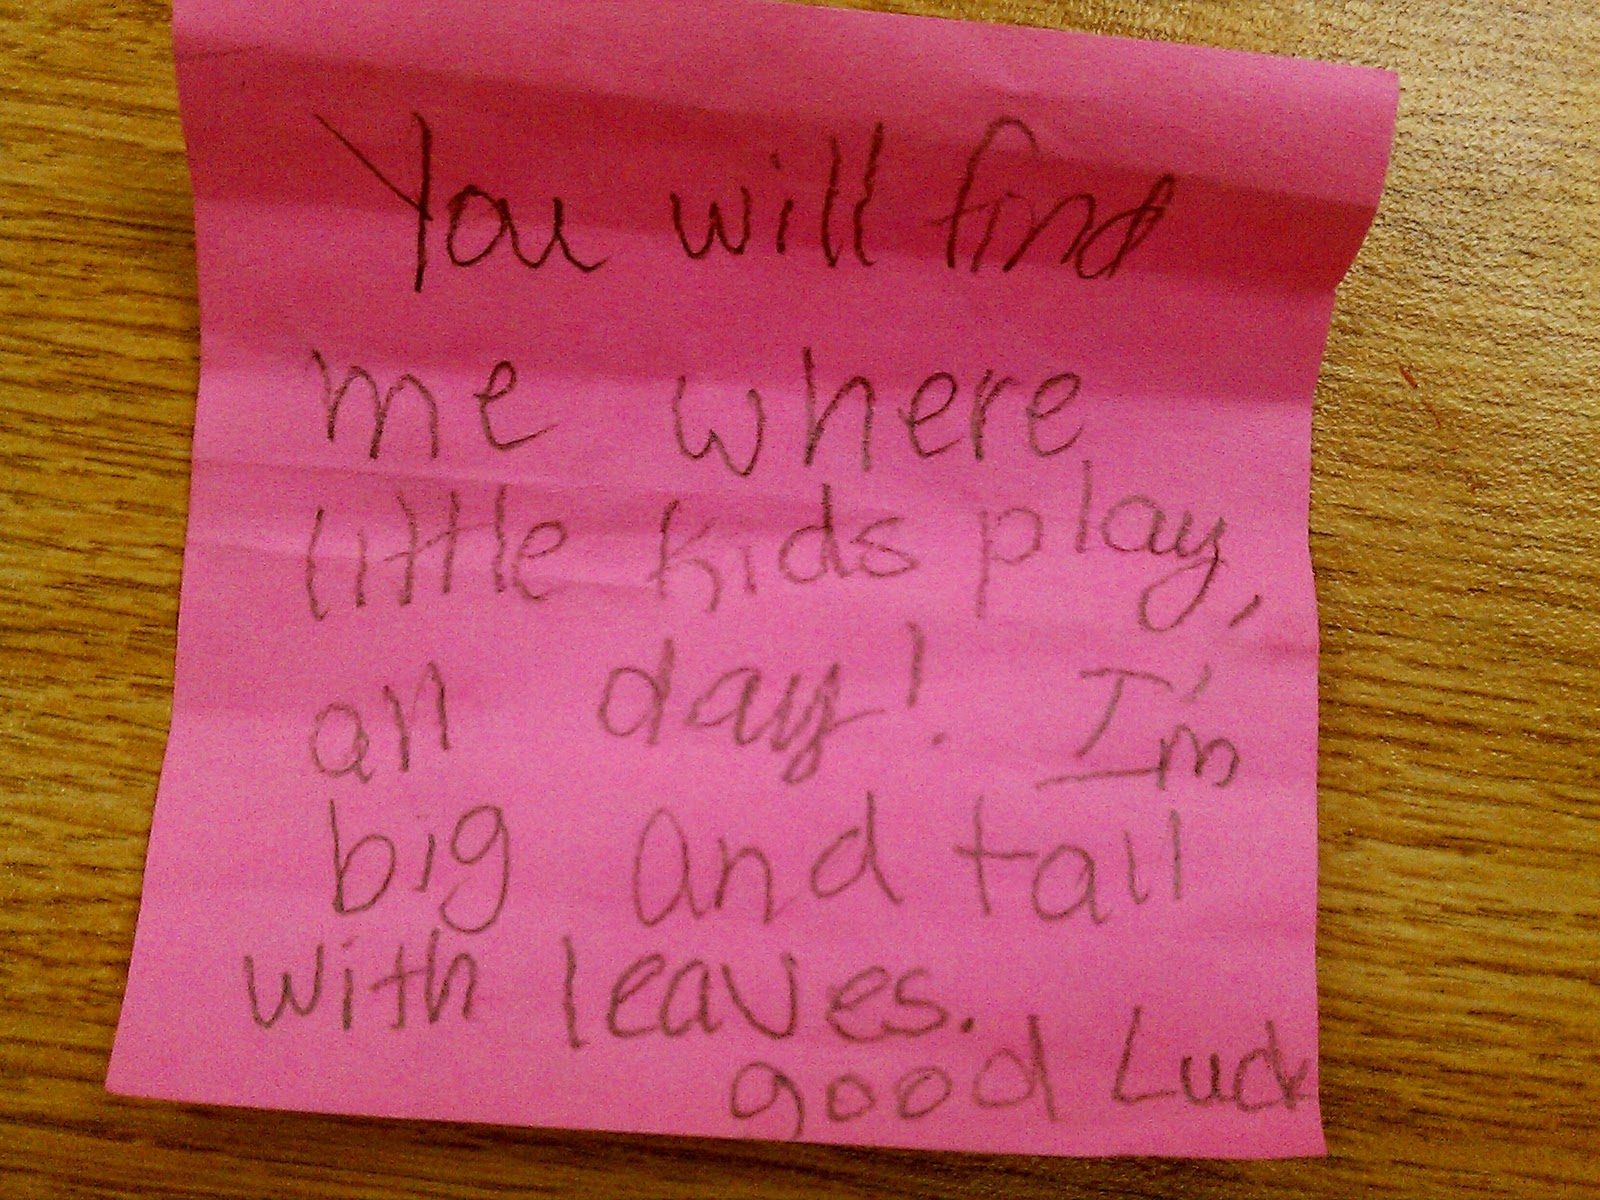 You will find
me where
little kids play,
all day! I'm
big and tall
with leaves.
good Luck